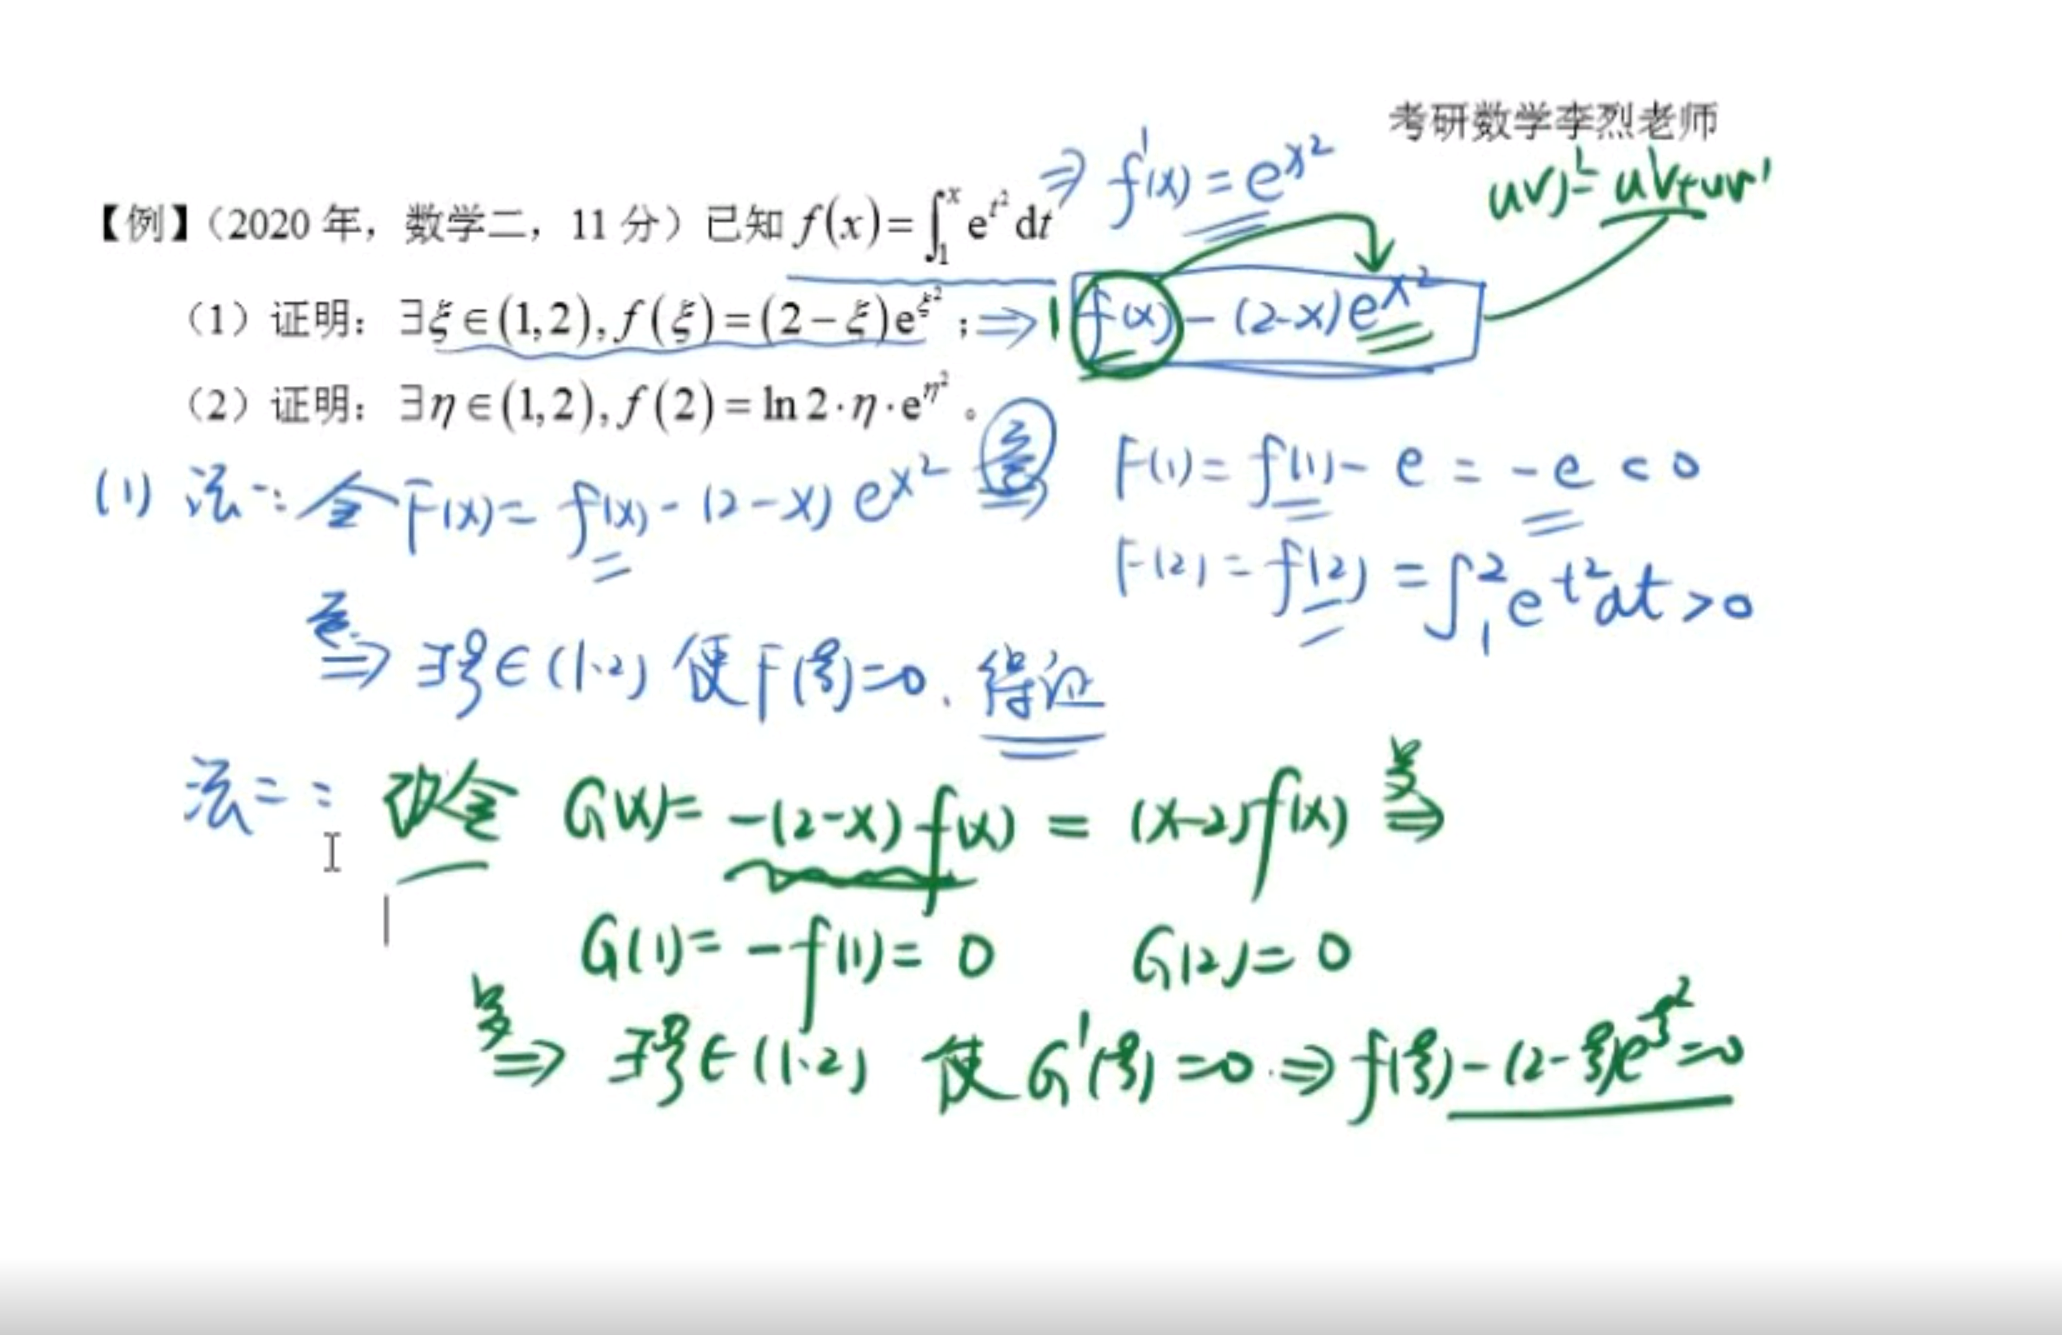 考研数学李烈老师
⇒ f'(x) = e^{x^2}
uv)' = u'v+uv'
【例】（2020 年，数学二，11 分）已知 f(x)=∫_1^x e^{t^2} dt
（1）证明：∃ξ∈(1,2), f(ξ)=(2−ξ)e^{ξ^2}； ⇒ 1 f(x) − (2-x)e^{x^2}
（2）证明：∃η∈(1,2), f(2)=ln2·η·e^{η^2}。
(1) 法一: 令 F(x)= f(x) - (2-x) e^{x^2} 零⇒ F(1)= f(1) - e = -e < 0
F(2) = f(2) = ∫_1^2 e^{t^2}dt > 0
零⇒ ∃ξ∈(1·2) 使F(ξ)=0. 得证
法二: 改令 G(x)= -(2-x) f(x) = (x-2)f(x) 罗⇒
G(1)= -f(1)= 0 G(2)= 0
罗⇒ ∃ξ∈(1·2) 使 G'(ξ)=0. ⇒ f(ξ)-(2-ξ)e^{ξ^2}=0